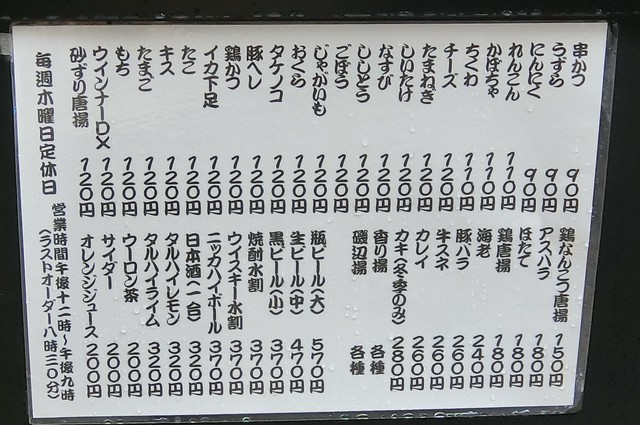 串かつ 90円
うずら 90円
にんにく 90円
れんこん 110円
かぼちゃ 110円
ちくわ 110円
チーズ 120円
たまねぎ 120円
しいたけ 120円
なすび 120円
ししとう 120円
ごぼう 120円
じゃがいも 120円
おくら 120円
タケノコ 120円
豚ヘレ 120円
鶏かつ 120円
イカ下足 120円
たこ 120円
キス 120円
たまご 120円
もち 120円
ウインナーDX 120円
砂ずり唐揚 120円
鶏なんこつ唐揚 150円
アスパラ 180円
ほたて 180円
鶏唐揚 180円
海老 240円
豚バラ 260円
牛スネ 260円
カレイ 260円
カキ(冬季のみ) 280円
香り揚 各種
磯辺揚 各種
瓶ビール(大) 570円
生ビール(中) 470円
黒ビール(小) 370円
焼酎水割 370円
ウイスキー水割 370円
ニッカハイボール 370円
日本酒(一合) 320円
タルハイレモン 320円
タルハイライム 320円
ウーロン茶 200円
サイダー 200円
オレンジジュース 200円
毎週木曜日定休日
営業時間午後十二時～午後九時
(ラストオーダー八時三〇分)